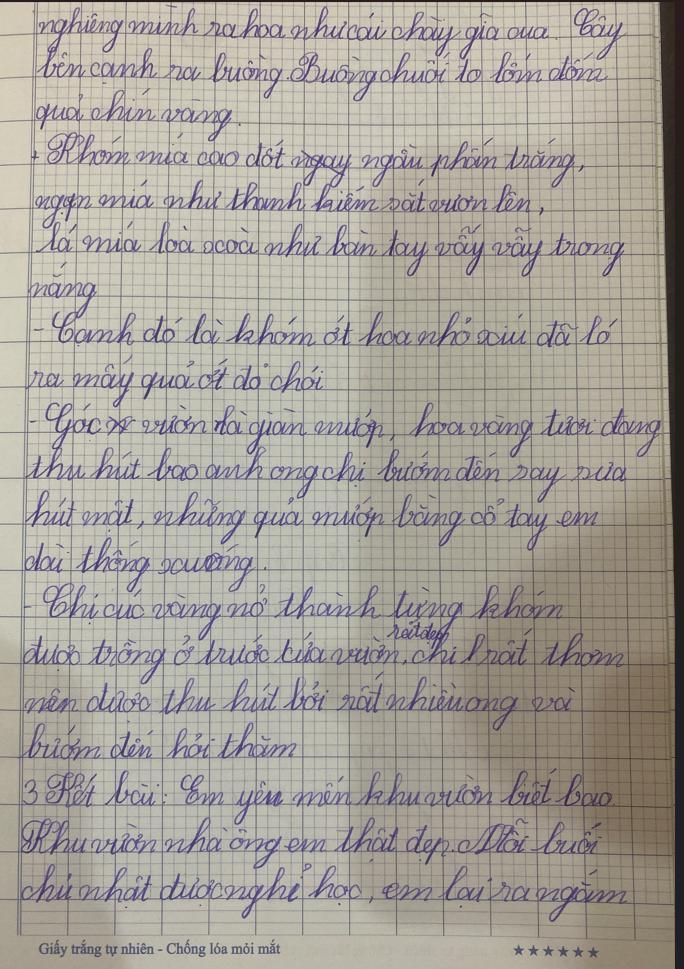 nghiêng mình ra hoa như cái chày giã cua. Cây
bên cạnh ra buồng. Buồng chuối to lốm đốm
quả chín vàng.
+ Khóm mía cao dót ngay ngâu phấn trắng,
ngọn mía như thanh kiếm sắt vươn lên,
lá mía loà xoà như bàn tay vẫy vẫy trong
nắng
- Cạnh đó là khóm ớt hoa nhỏ xíu đã ló
ra mấy quả ớt đỏ chói
- Góc vườn là giàn mướp, hoa vàng tươi đang
thu hút bao anh ong chị bướm đến say sưa
hút mật, những quả mướp bằng cổ tay em
dài thõng xuống.
- Chị cúc vàng nở thành từng khóm
được trồng ở trước cửa vườn, rất đẹp chi rất thơm
nên được thu hút bởi rất nhiều ong và
bướm đến hỏi thăm
3 Kết bài: Em yêu mến khu vườn biết bao
Khu vườn nhà ông em thật đẹp. Mỗi buổi
chủ nhật được nghỉ học, em lại ra ngắm
Giấy trắng tự nhiên - Chống lóa mỏi mắt